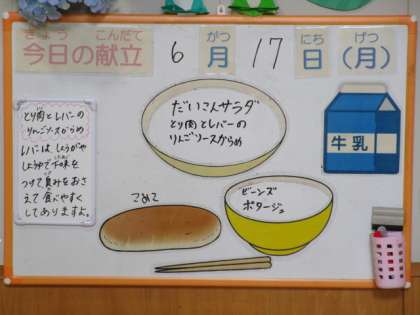 きょう こんだて
今日の献立
6
がつ
月
17
にち
日
げつ
(月)
だいこんサラダ
とり肉とレバーの
りんごソースからめ
牛乳
とり肉とレバーの
りんごソースからめ
レバーは しょうがや
しょうゆで下味を
つけて臭みをおさ
えて 食べやすく
してありますよ。
こめこ
ビーンズ
ポタージュ